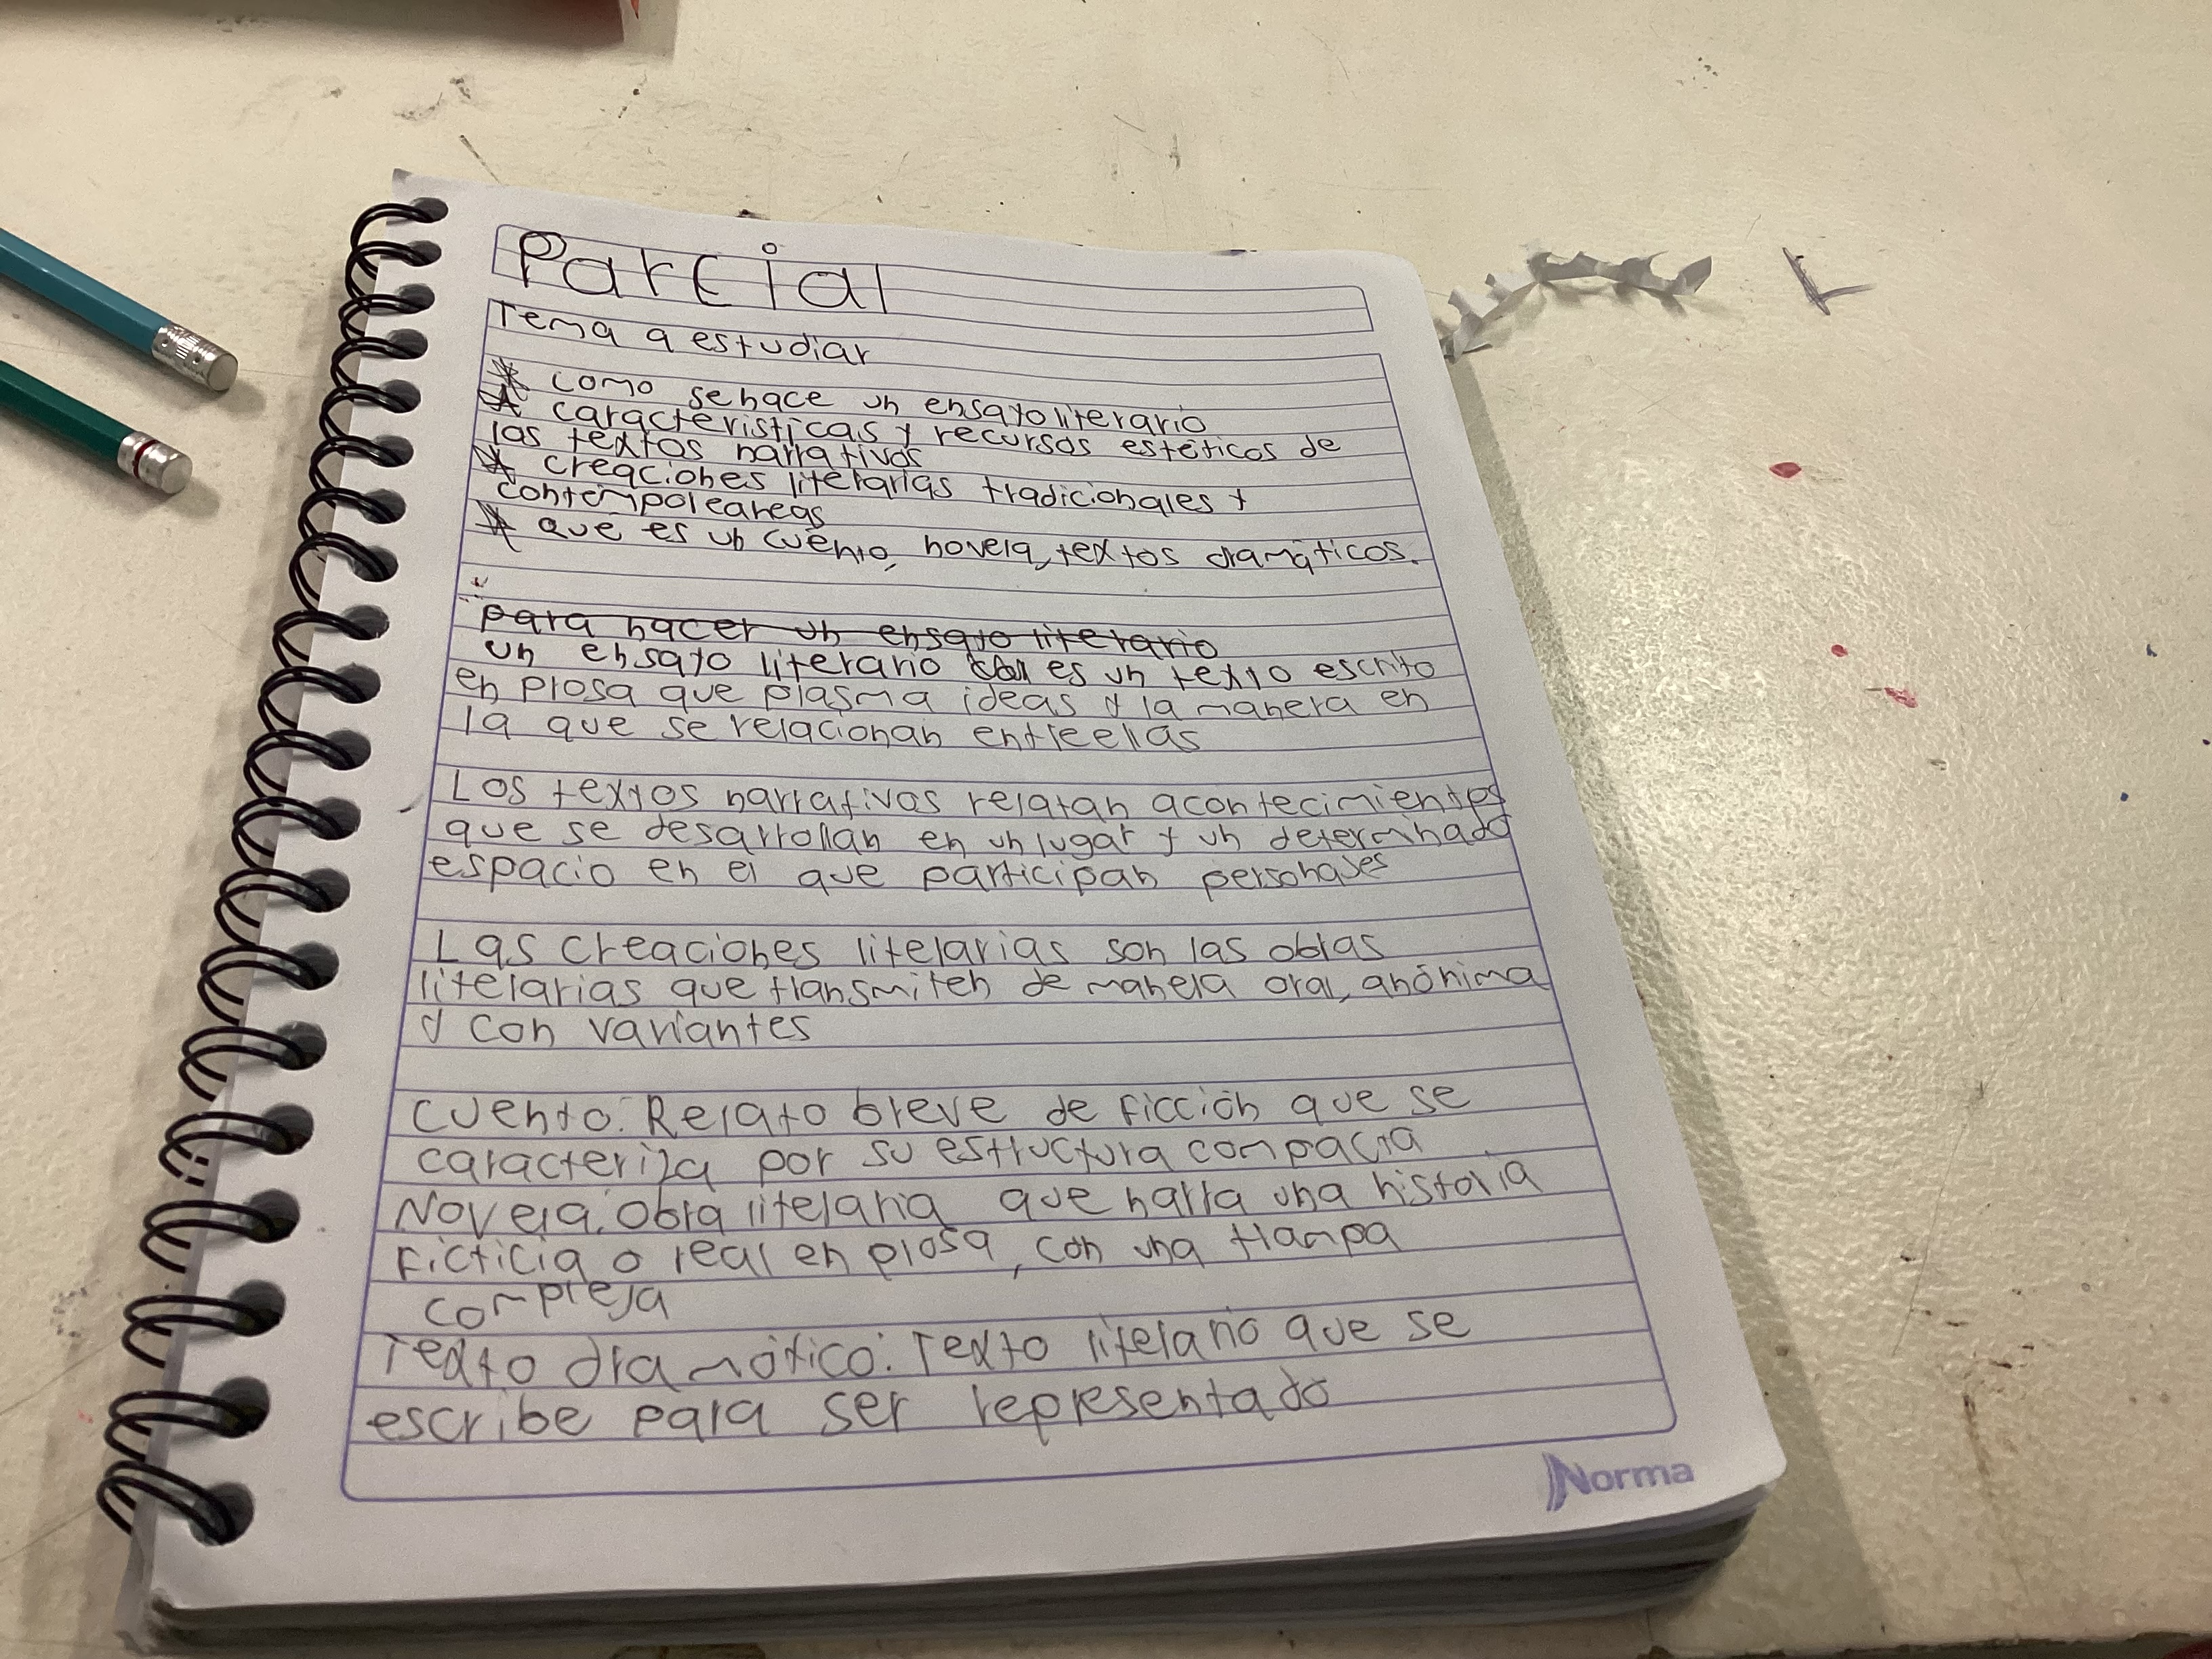 Parcial
Tema a estudiar
* como se hace un ensayo literario
* caracteristicas y recursos estéticos de
los textos narrativos
* creaciones literarias tradicionales y
contempoleareas
* que es un cuento, novela, textos dramáticos.
para hacer un ensayo literario
un ensayo literario es un texto escrito
en prosa que plasma ideas y la manera en
la que se relacionan entre ellas
Los textos narrativos relatan acontecimientos
que se desarrollan en un lugar y un determinado
espacio en el que participan personajes
Las creaciones literarias son las obras
literarias que transmiten de manera oral, anónima
y con variantes
cuento: Relato breve de ficción que se
caracteriza por su estructura compacta
Novela: Obra literaria que narra una historia
ficticia o real en prosa, con una trampa
compleja
Texto dramático: Texto literario que se
escribe para ser representado
Norma